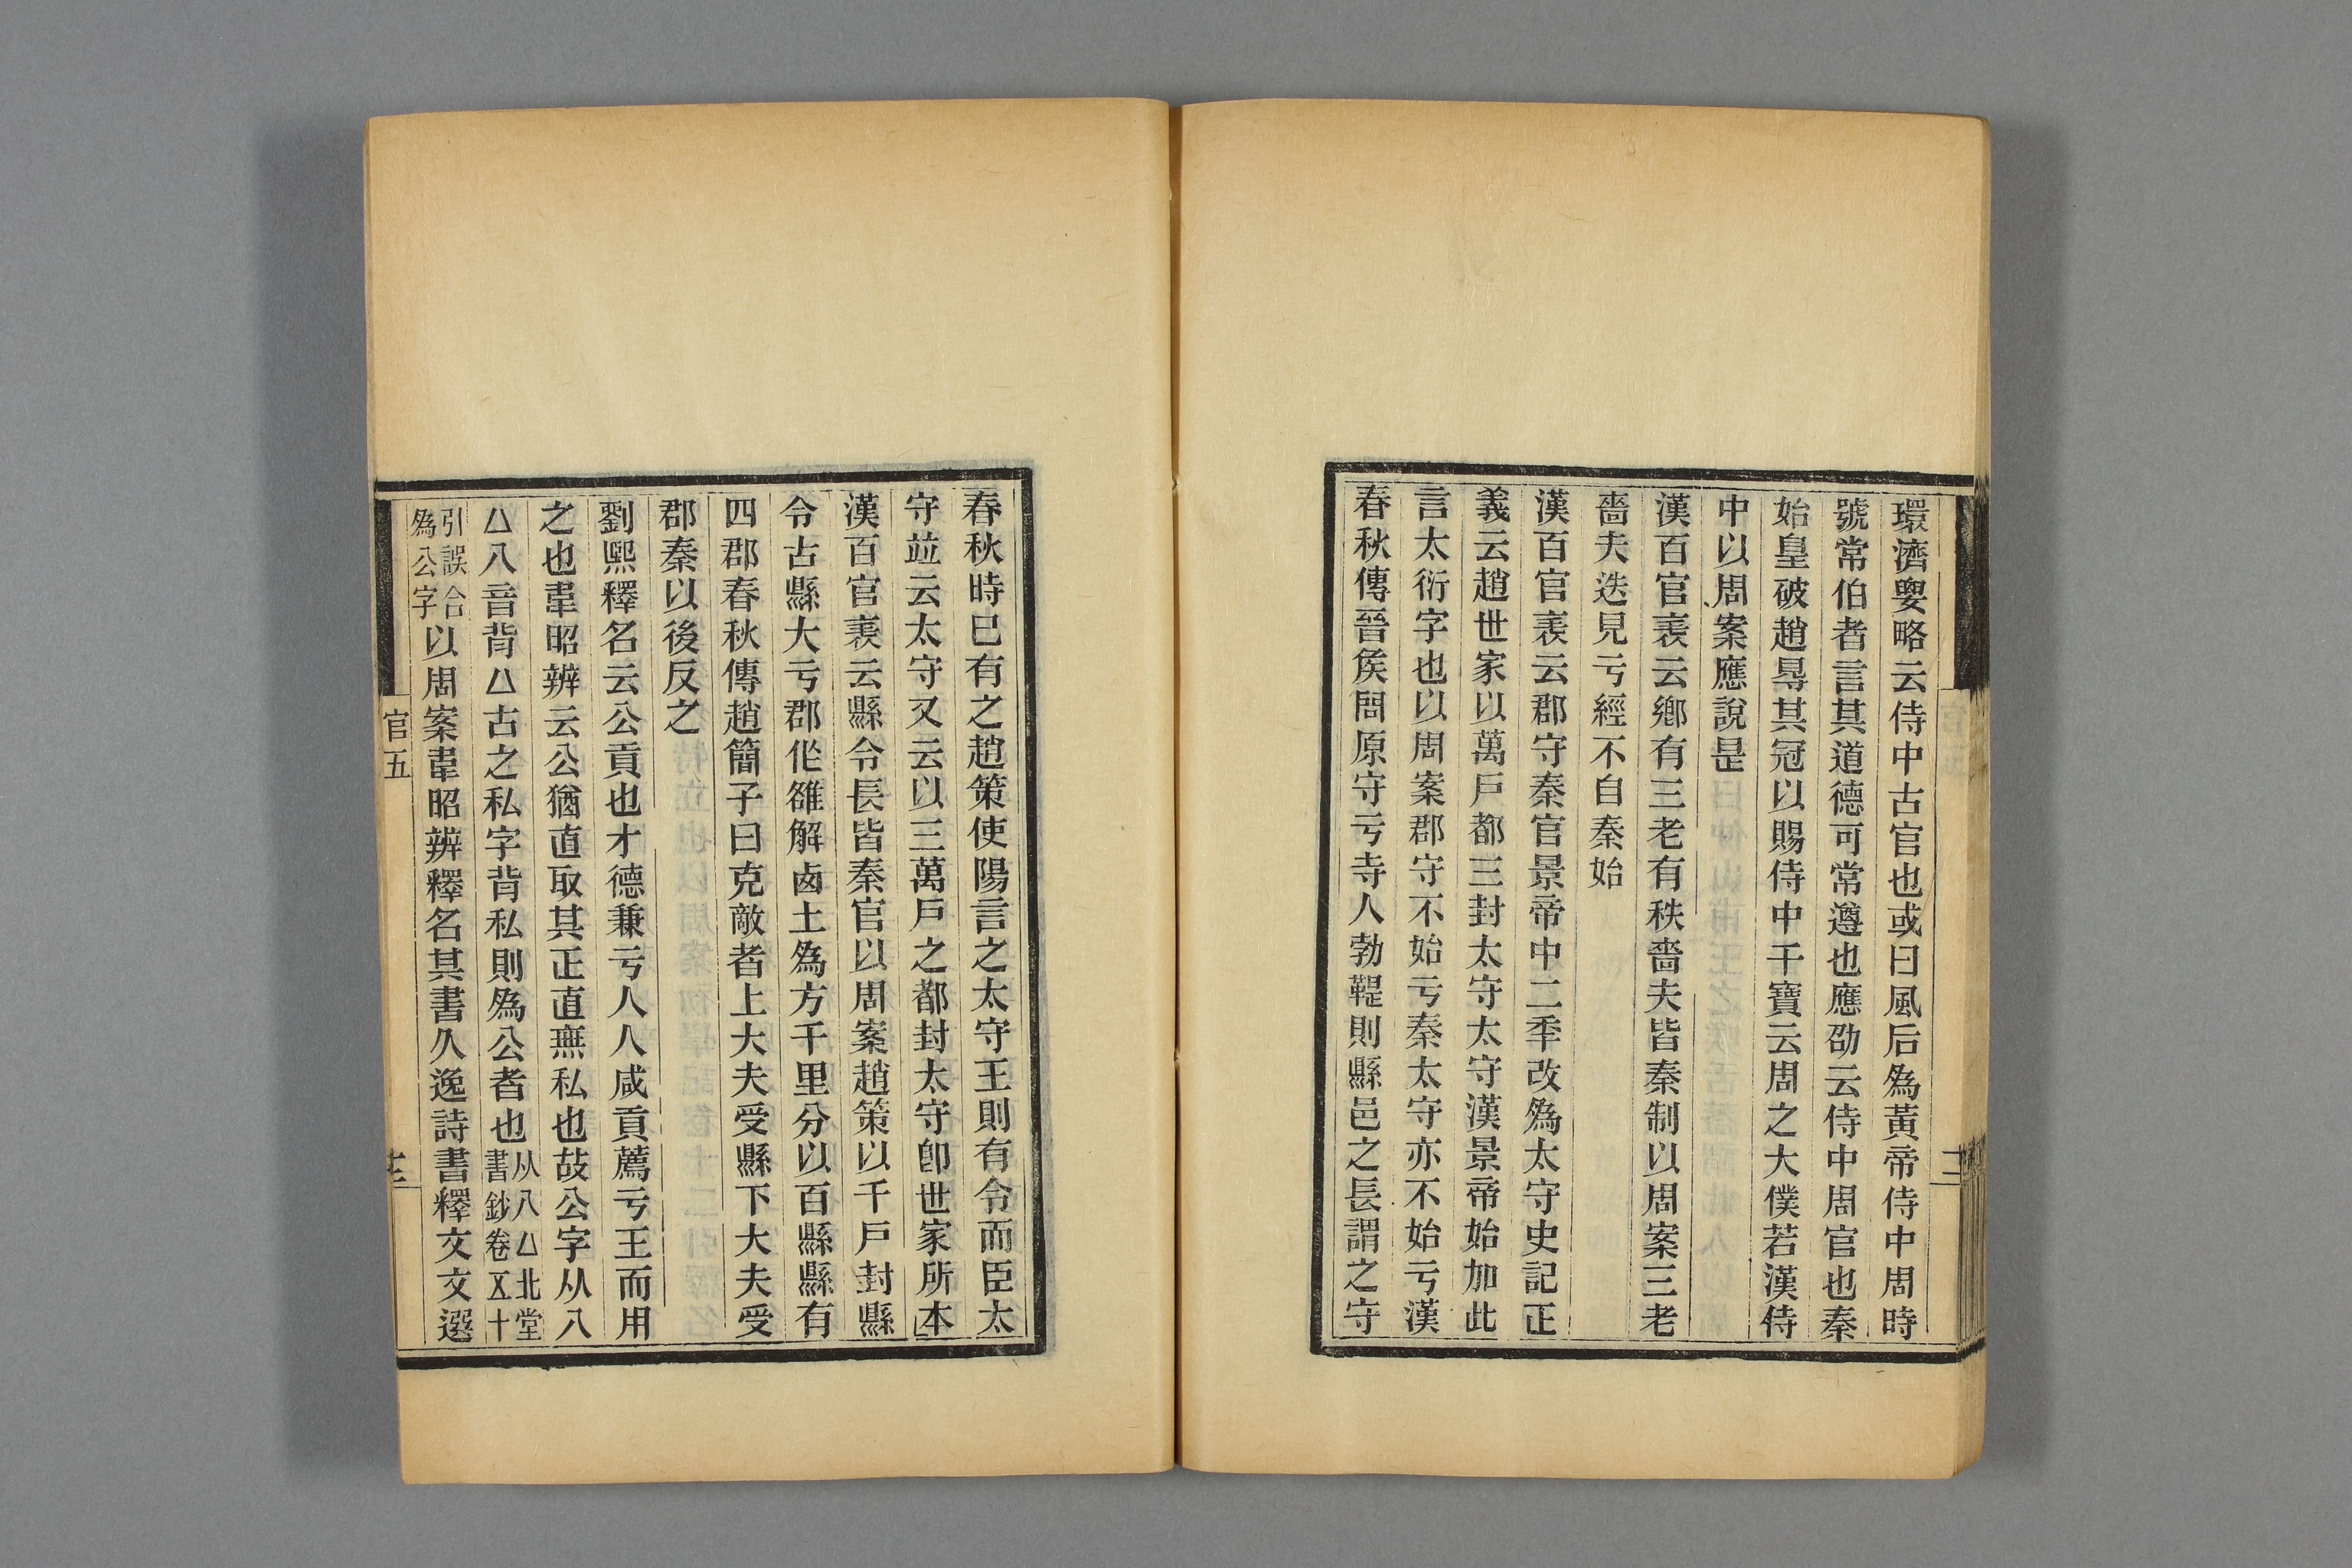 環濟㚻略云侍中古官也或曰風后爲黃帝侍中周時
號常伯者言其道德可常遵也應劭云侍中周官也秦
始皇破趙㝵其冠以賜侍中千寶云周之大僕若漢侍
中以周案應說是
漢百官表云鄉有三老有秩嗇夫皆秦制以周案三老
嗇夫迭見亏經不自秦始
漢百官表云郡守秦官景帝中二季改爲太守史記正
義云趙世家以萬戸都三封太守太守漢景帝始加此
言太衍字也以周案郡守不始亏秦太守亦不始亏漢
春秋傳晉矦問原守亏寺人勃鞮則縣邑之長謂之守
春秋時巳有之趙策使陽言之太守王則有令而臣太
守竝云太守又云以三萬戸之都封太守卽世家所本
漢百官表云縣令長皆秦官以周案趙策以千戸封縣
令古縣大亏郡作雒解㢴土爲方千里分以百縣縣有
四郡春秋傳趙簡子曰克敵者上大夫受縣下大夫受
郡秦以後反之
劉熙釋名云公貢也才德兼亏人人咸貢薦亏王而用
之也韋昭辨云公猶直取其正直無私也故公字从八
厶八音背厶古之私字背私則爲公者也从八厶北堂書鈔卷五十
引誤合爲公字以周案韋昭辨釋名其書久逸詩書釋文文選
官五
十二
十三